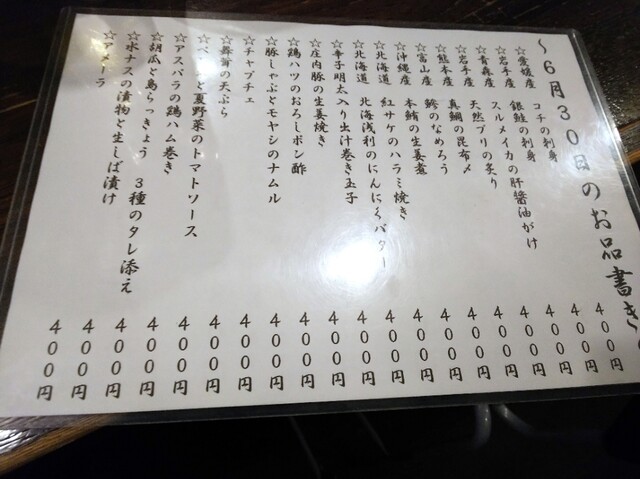 ～6月30日のお品書き
☆愛媛産 コチの刺身 400円
☆岩手産 銀鮭の刺身 400円
☆青森産 スルメイカの肝醤油がけ 400円
☆岩手産 天然ブリの炙り 400円
☆熊本産 真鯛の昆布〆 400円
☆富山産 鯵のなめろう 400円
☆沖縄産 本鮪の生姜煮 400円
☆北海道 紅サケのハラミ焼き 400円
☆北海道 北海浅利のにんにくバター 400円
☆辛子明太入り出汁巻き玉子 400円
☆庄内豚の生姜焼き 400円
☆鶏ハツのおろしポン酢 400円
☆豚しゃぶとモヤシのナムル 400円
☆チャプチェ 400円
☆舞茸の天ぷら 400円
☆と夏野菜のトマトソース 400円
☆アスパラの鶏ハム巻き 400円
☆胡瓜と島らっきょう 3種のタレ添え 400円
☆水ナスの漬物と生しば漬け 400円
☆アメーラ 400円